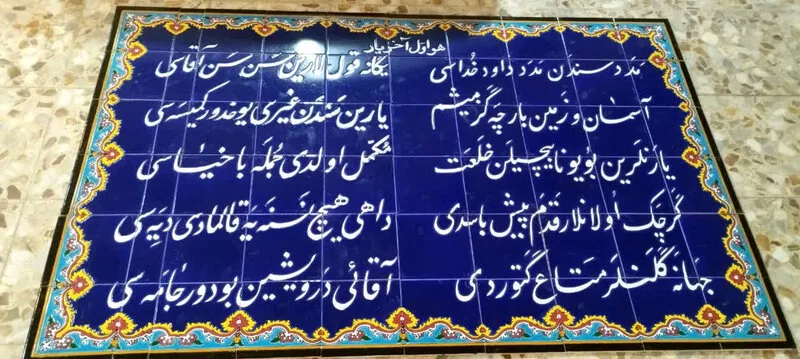 هو اول آخر یار
مدد سندن مدد داود خداسی یگانه قول لارین سن سن آقاسی
آسمان و زمین بارچه گزمیشم یارین سندن غیری یوخدور کیمسه سی
یارنلرین بویونا بیچیلن خلعت مکمل اولدی جمله با خیاسی
گرچک اولانلار قدم پیش باسدی داهی هیچ نسنه یه قالمادی دیه سی
جهانه گلنلر متاع گتوردی آقائی درویشین بودور جامه سی